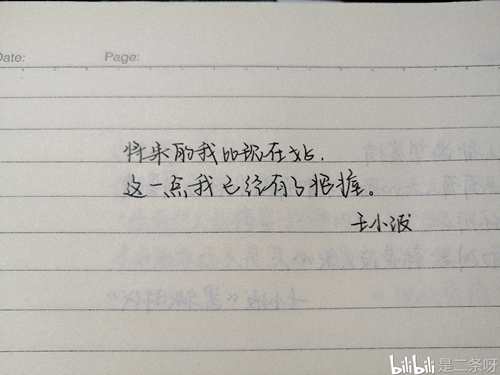 Date:
Page:
将来的我比现在好.
这一点我已经有了把握。
王小波
bilibili 是二条呀